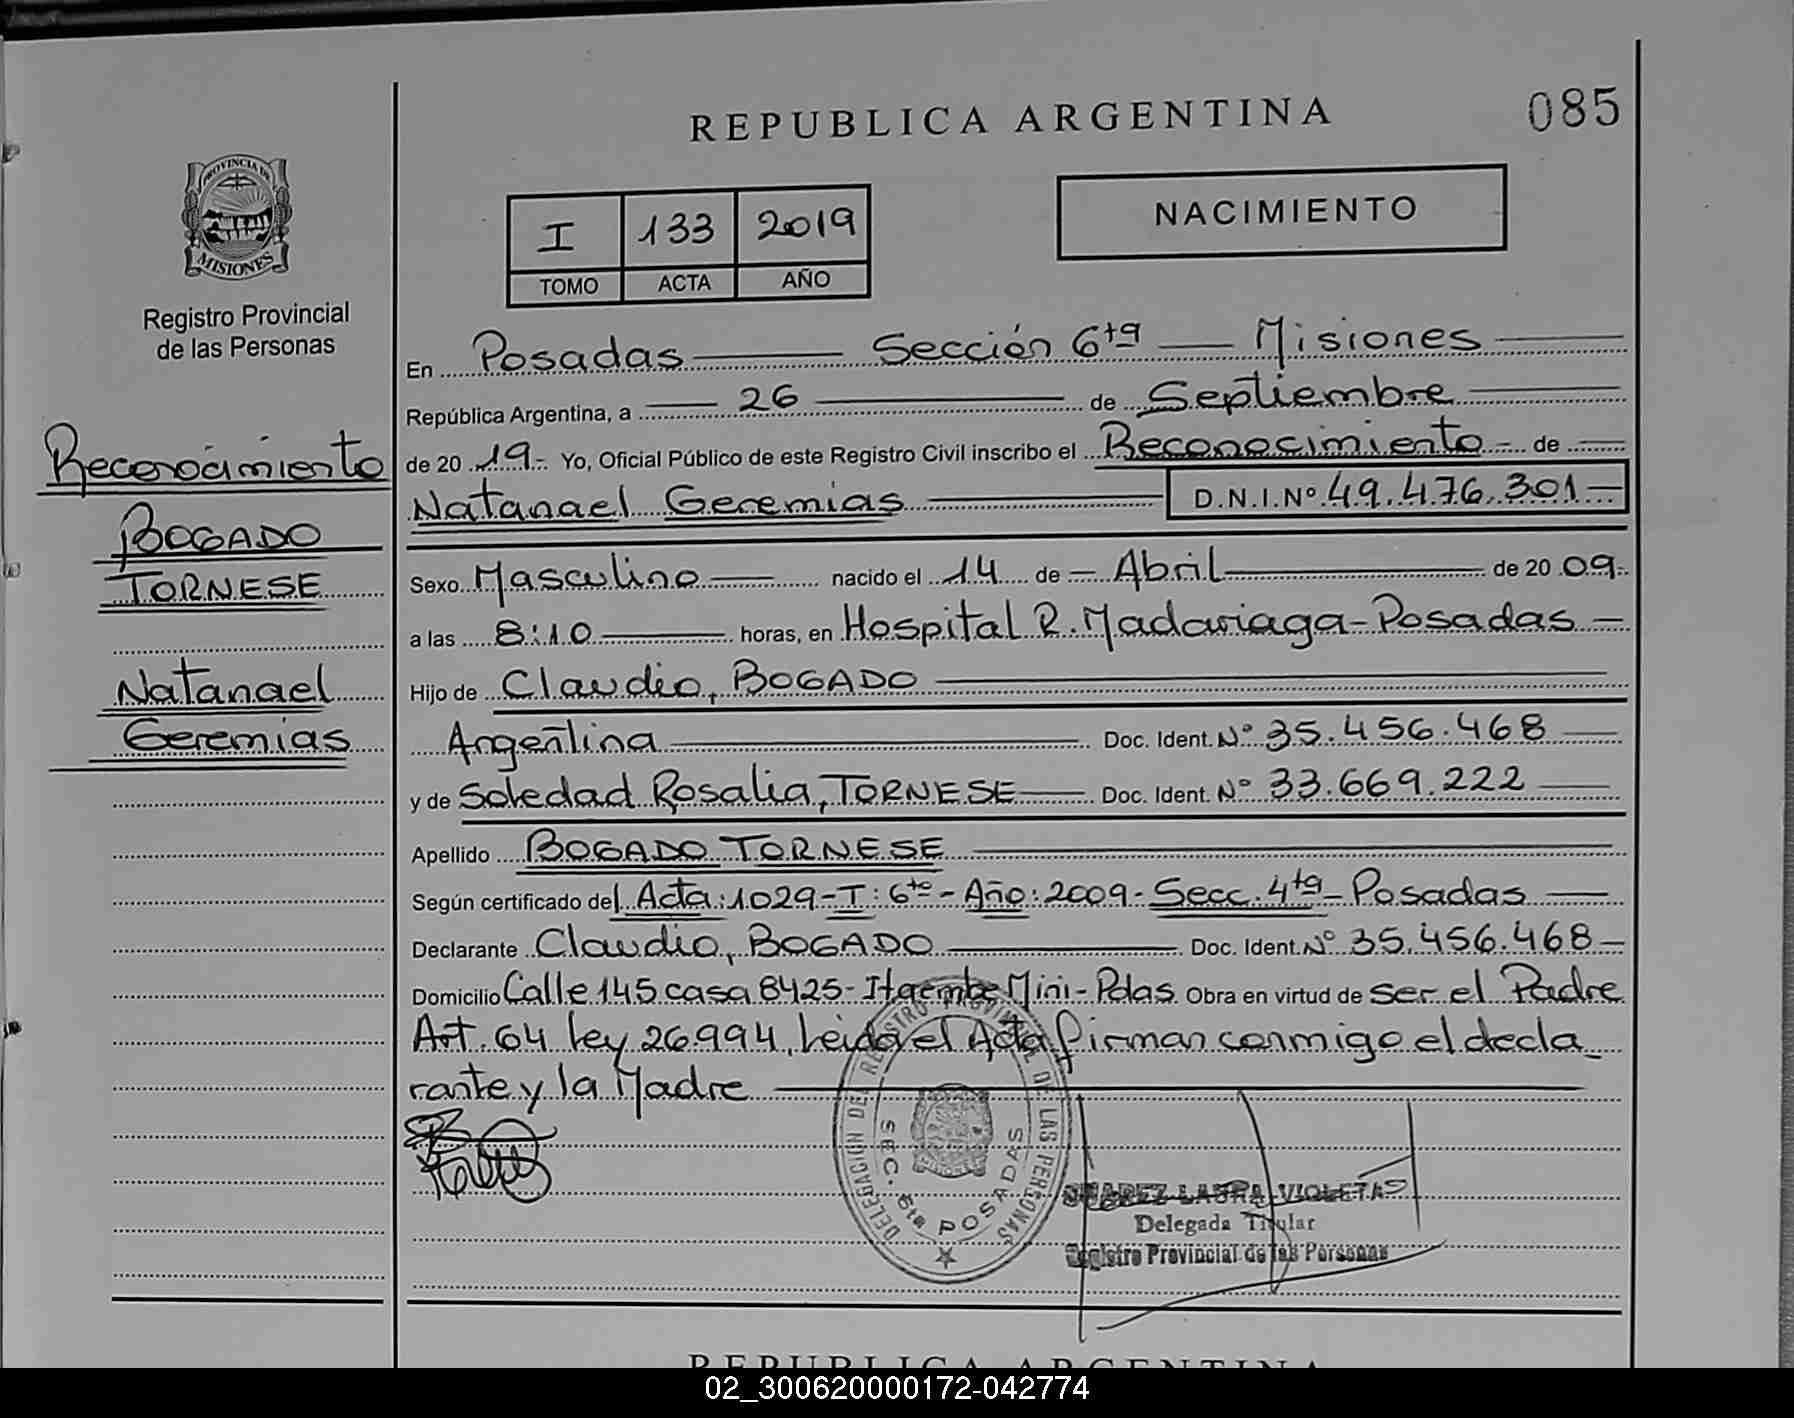 REPUBLICA ARGENTINA
085
PROVINCIA DE
MISIONES
Registro Provincial
de las Personas
I 133 2019
TOMO ACTA AÑO
NACIMIENTO
Reconocimiento
BOGADO
TORNESE
Natanael
Geremias
En Posadas Sección 6ta Misiones
República Argentina, a 26 de Septiembre
de 2019.- Yo, Oficial Público de este Registro Civil inscribo el Reconocimiento de
Natanael Geremias D.N.I.Nº 49.476.301
Sexo Masculino nacido el 14 de Abril de 2009.
a las 8:10 horas, en Hospital R. Madariaga-Posadas
Hijo de Claudio, BOGADO
Argentina Doc. Ident. Nº 35.456.468
y de Soledad Rosalia, TORNESE Doc. Ident. Nº 33.669.222
Apellido BOGADO TORNESE
Según certificado del Acta:1029-T:6to-Año:2009-Secc.4ta-Posadas
Declarante Claudio, BOGADO Doc. Ident. Nº 35.456.468
Domicilio Calle 145 casa 8425-Itaembe Mini-Pdas. Obra en virtud de ser el Padre
Art. 64 Ley 26.994. Leída el Acta firman conmigo el decla_
rante y la Madre
DELEGACION DEL REGISTRO PROVINCIAL DE LAS PERSONAS
SEC. 6ta POSADAS
SUAREZ LAURA VIOLETA
Delegada Titular
Registro Provincial de las Personas
REPUBLICA ARGENTINA
02_300620000172-042774